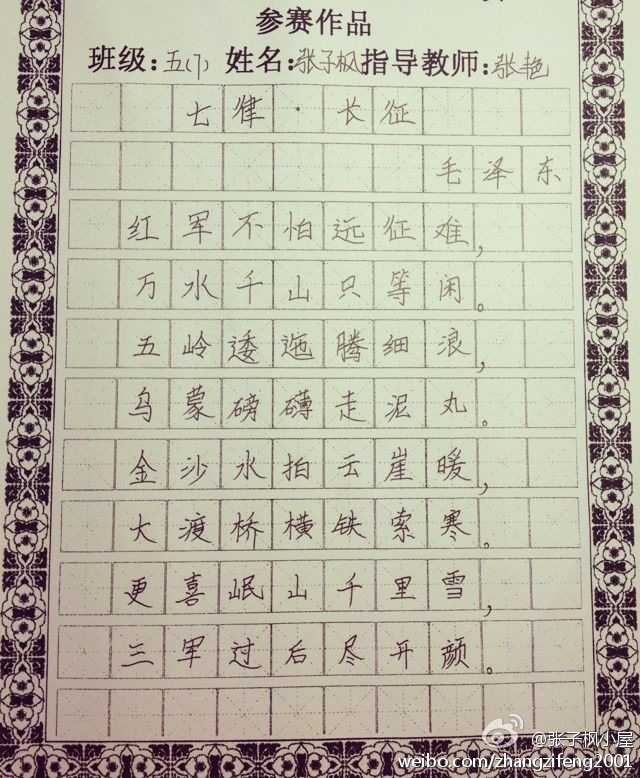 参赛作品
班级:五(7) 姓名:张子枫指导教师:张艳
七律·长征
毛泽东
红军不怕远征难,
万水千山只等闲。
五岭逶迤腾细浪,
乌蒙磅礴走泥丸。
金沙水拍云崖暖,
大渡桥横铁索寒。
更喜岷山千里雪,
三军过后尽开颜。
@张子枫小屋
weibo.com/zhangzifeng2001